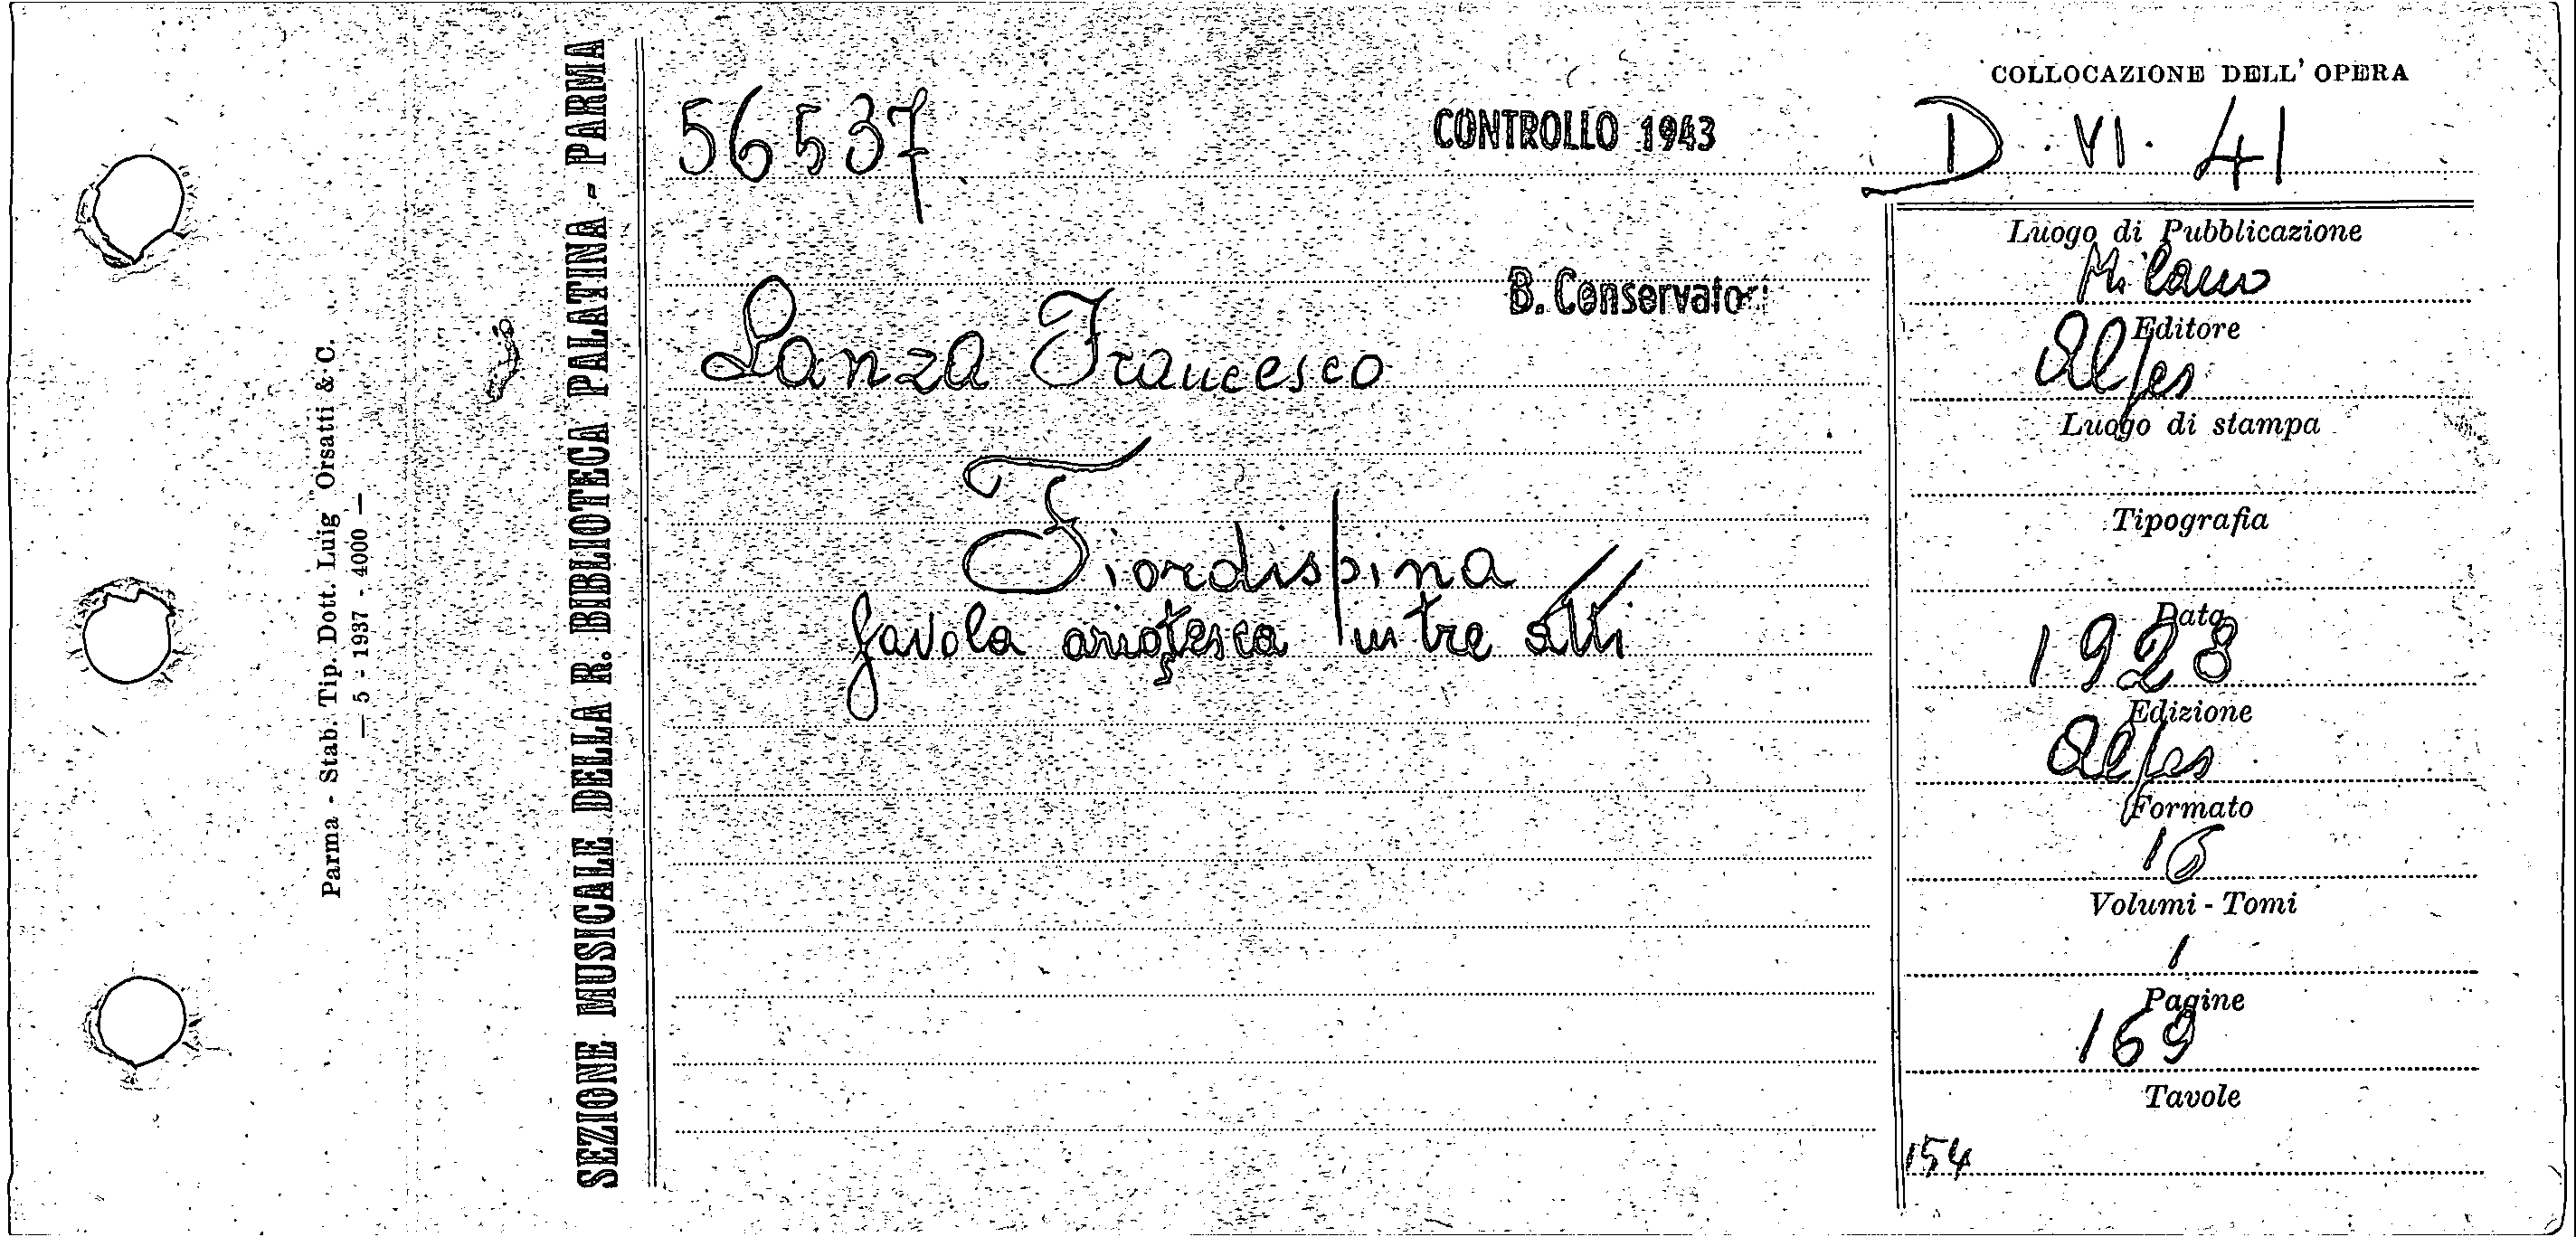 SEZIONE MUSICALE DELLA R. BIBLIOTECA PALATINA - PARMA
Parma - Stab. Tip. Dott. Luig Orsatti & C.
— 5 - 1937 - 4000 —
56537
CONTROLLO 1943
B. Conservator
Lanza Francesco
Fiordispina
favola ariostesca in tre atti
COLLOCAZIONE DELL' OPERA
D. VI. 41
Luogo di Pubblicazione
Milano
Editore
Alpes
Luogo di stampa
Tipografia
Data
1928
Edizione
Alpes
Formato
16
Volumi - Tomi
1
Pagine
169
Tavole
154